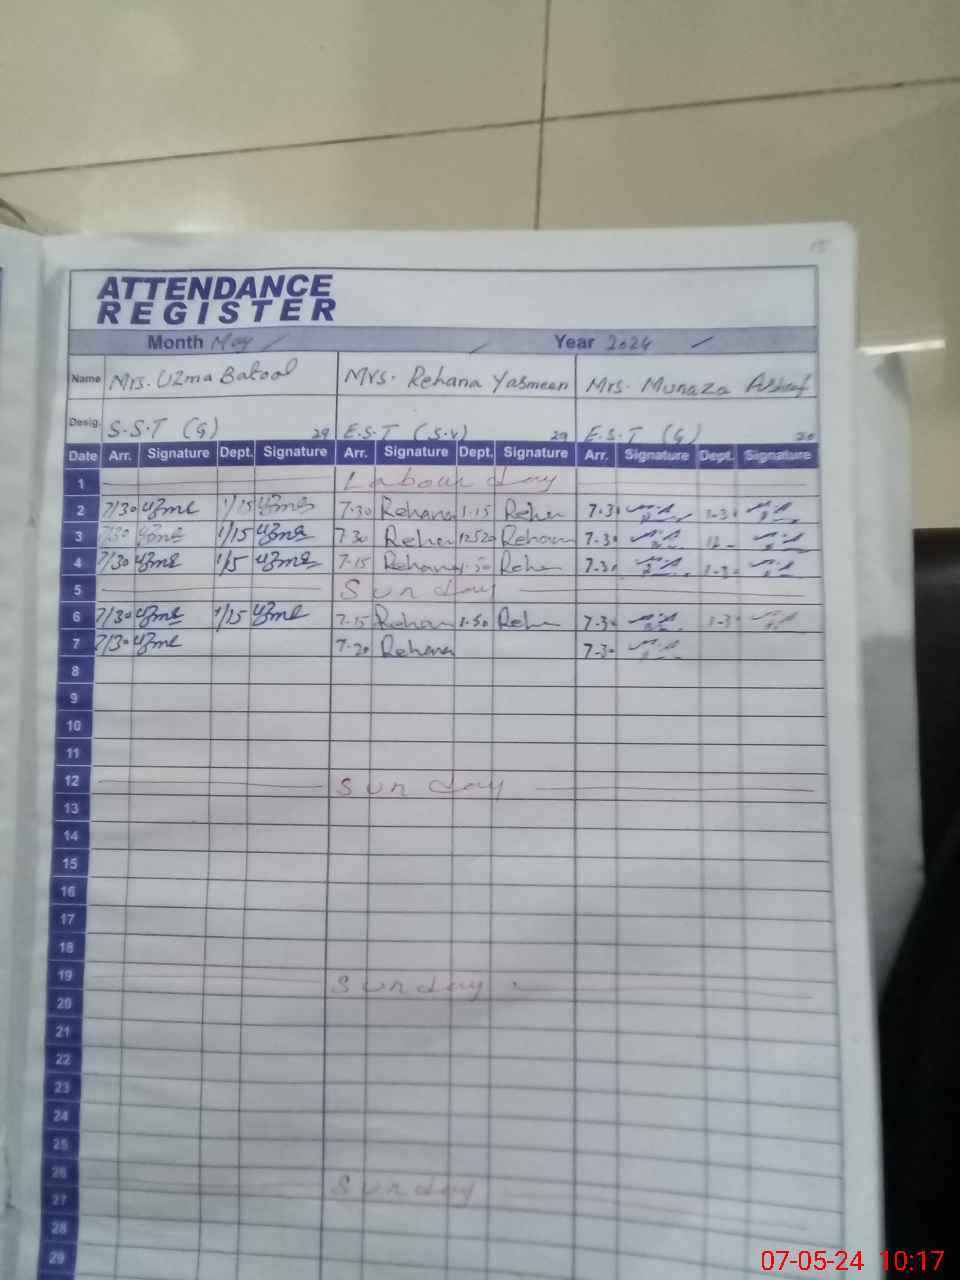 ATTENDANCE
REGISTER
Month May Year 2024
Name Mrs. Uzma Batool Mrs. Rehana Yasmeen Mrs. Munaza Ashraf
Desig. S.S.T (G) 29 E.S.T (S.V) 29 E.S.T (G)
Date Arr. Signature Dept. Signature Arr. Signature Dept. Signature Arr. Signature Dept. Signature
1 Labour day
2 7/30 Uzma 1/15 Uzma 7.30 Rehana 1.15 Rehan 7.3
3 7/30 Uzma 1/15 Uzma 7.30 Rehan Rehan 7.3
4 7/30 Uzma 1/5 Uzma 7.15 Rehana Rehan 7.3
5 Sunday
6 7/30 Uzma 1/15 Uzma 7.15 Rehan 1.50 Rehn 7.3
7 7/30 Uzma 7.20 Rehana 7-3
8
9
10
11
12 Sunday
13
14
15
16
17
18
19 Sunday
20
21
22
23
24
25
26 Sunday
27
28
29
07-05-24 10:17